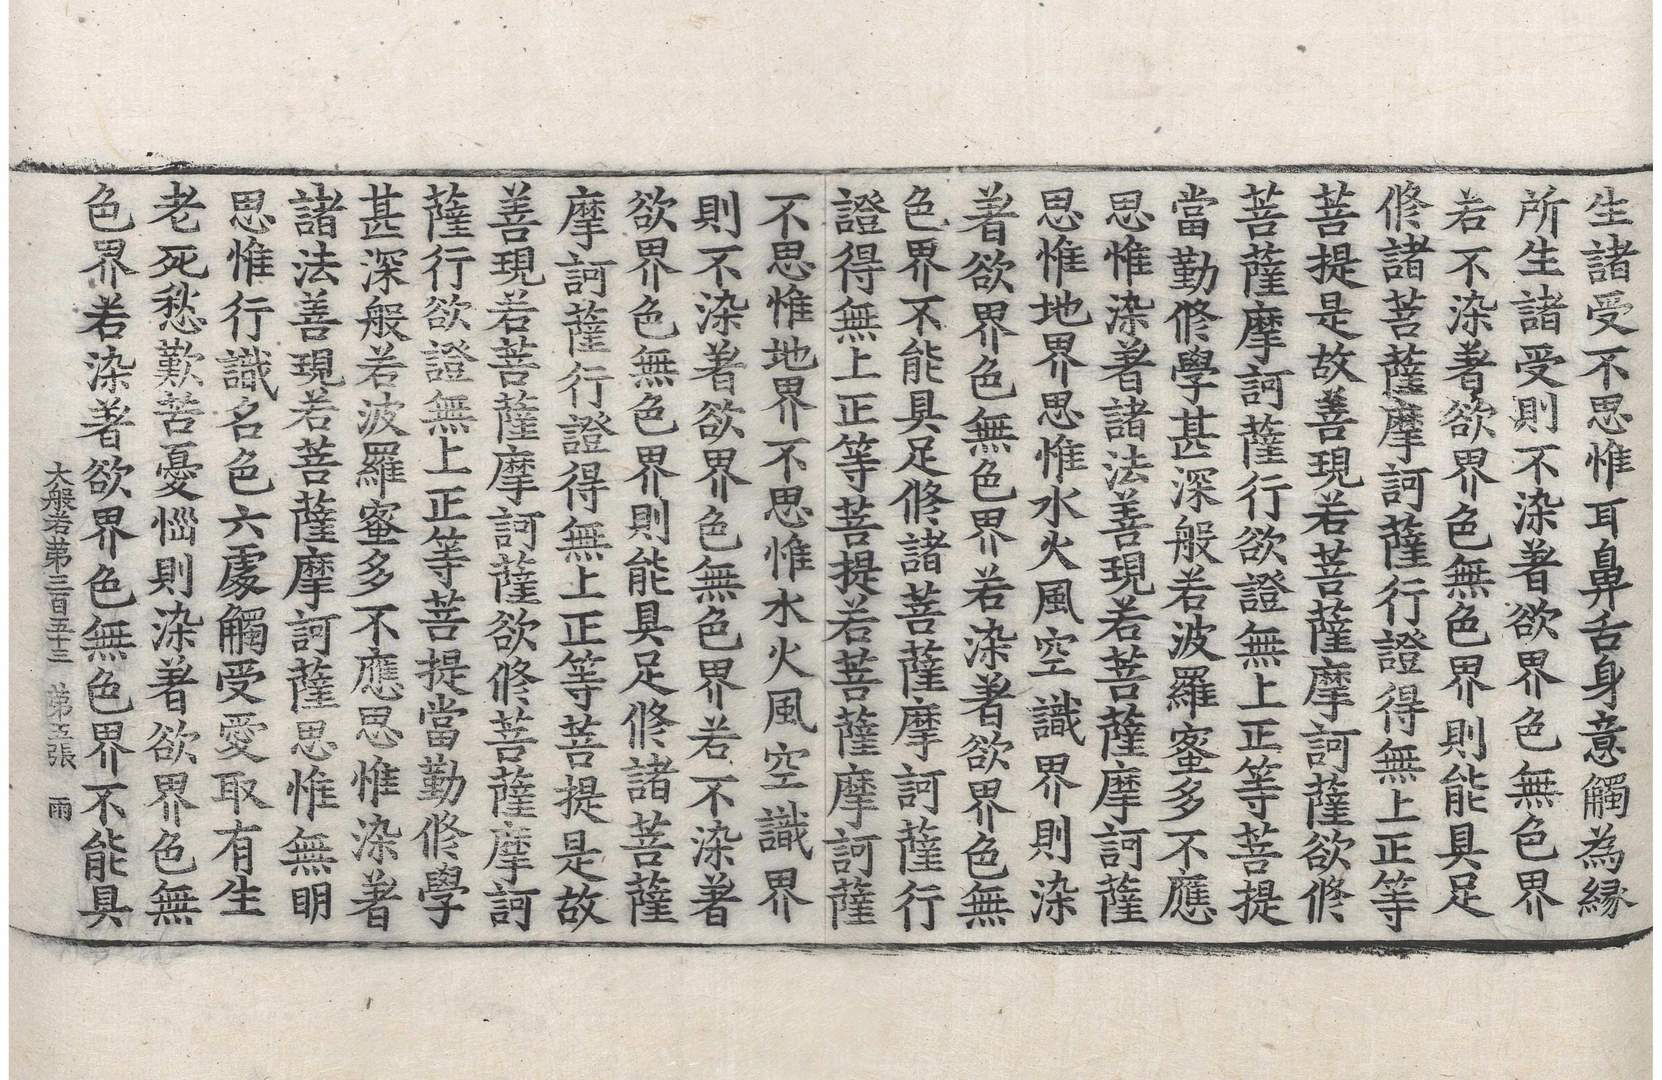 生諸受不思惟耳鼻舌身意觸為緣
所生諸受則不染著欲界色無色界
若不染著欲界色無色界則能具足
修諸菩薩摩訶薩行證得無上正等
菩提是故善現若菩薩摩訶薩欲修
菩薩摩訶薩行欲證無上正等菩提
當勤修學甚深般若波羅蜜多不應
思惟染著諸法善現若菩薩摩訶薩
思惟地界思惟水火風空識界則染
著欲界色無色界若染著欲界色無
色界不能具足修諸菩薩摩訶薩行
證得無上正等菩提若菩薩摩訶薩
不思惟地界不思惟水火風空識界
則不染著欲界色無色界若不染著
欲界色無色界則能具足修諸菩薩
摩訶薩行證得無上正等菩提是故
善現若菩薩摩訶薩欲修菩薩摩訶
薩行欲證無上正等菩提當勤修學
甚深般若波羅蜜多不應思惟染著
諸法善現若菩薩摩訶薩思惟無明
思惟行識名色六處觸受愛取有生
老死愁歎苦憂惱則染著欲界色無
色界若染著欲界色無色界不能具
大般若第三百五十三 第五張 雨